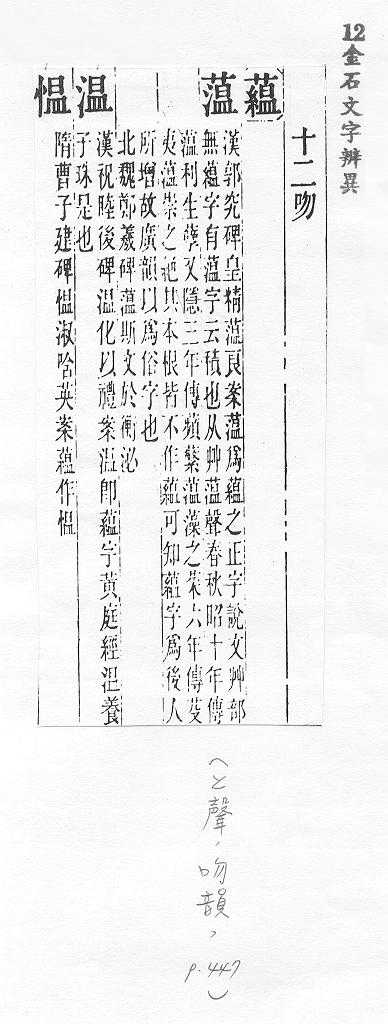 12金石文字辨異
十二吻
蘊
薀
漢郭究碑皇精薀良案薀爲蘊之正字說文艸部
無蘊字有薀字云積也从艸薀聲春秋昭十年傳
薀利生孽又隱三年傳蘋蘩薀藻之菜六年傳芟
夷薀崇之絶其本根皆不作蘊可知蘊字爲後人
所增故廣韻以爲俗字也
北魏鄭羲碑薀斯文於衡泌
温
漢祝睦後碑温化以禮案温卽蘊字黃庭經温養
子珠是也
愠
隋曹子建碑愠淑含英案蘊作愠
(上聲,吻韻,
p.447)